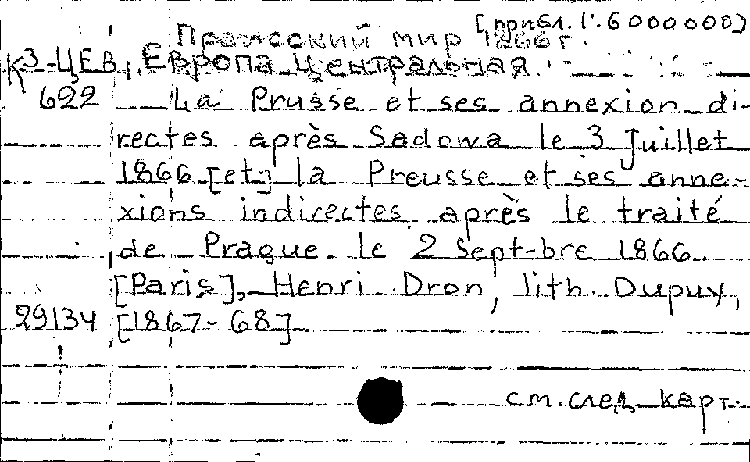 [прибл. 1:6000000]
Прусский мир 1866 г.
К 3-ЦЕВ, Европа центральная.
622 La Prusse et ses annexion di-
rectes après Sadowa le 3 Juillet
1866 [et] la Preusse et ses anne-
xions indirectes après le traité
de Prague le 2 Sept-bre 1866.
[Paris], Henri Dron, lith. Dupuy,
29134 [1867-68]
см. след. карт.